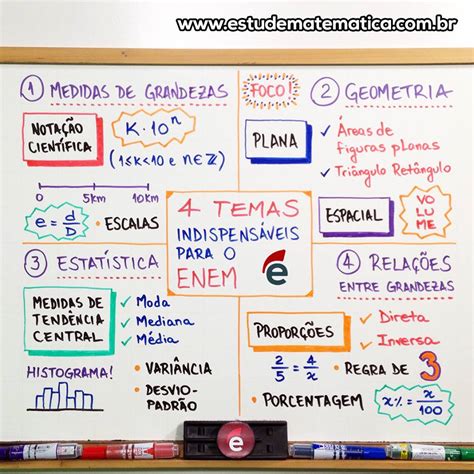 www.estudematematica.com.br
1 MEDIDAS DE GRANDEZAS
NOTAÇÃO
CIENTÍFICA
K·10ⁿ
(1≤K<10 e n∈ℤ)
0 5km 10km
e = d/D
• ESCALAS
FOCO!
2 GEOMETRIA
PLANA
✓ Áreas de
figuras planas
✓ Triângulo Retângulo
ESPACIAL
VO
LU
ME
4 TEMAS
INDISPENSÁVEIS
PARA O
ENEM
e
3 ESTATÍSTICA
MEDIDAS DE
TENDÊNCIA
CENTRAL
✓ Moda
✓ Mediana
✓ Média
HISTOGRAMA!
• VARIÂNCIA
• DESVIO-
PADRÃO
4 RELAÇÕES
ENTRE GRANDEZAS
PROPORÇÕES
✓ Direta
✓ Inversa
2/5 = 4/x
• REGRA DE 3
• PORCENTAGEM
x% = x/100
e